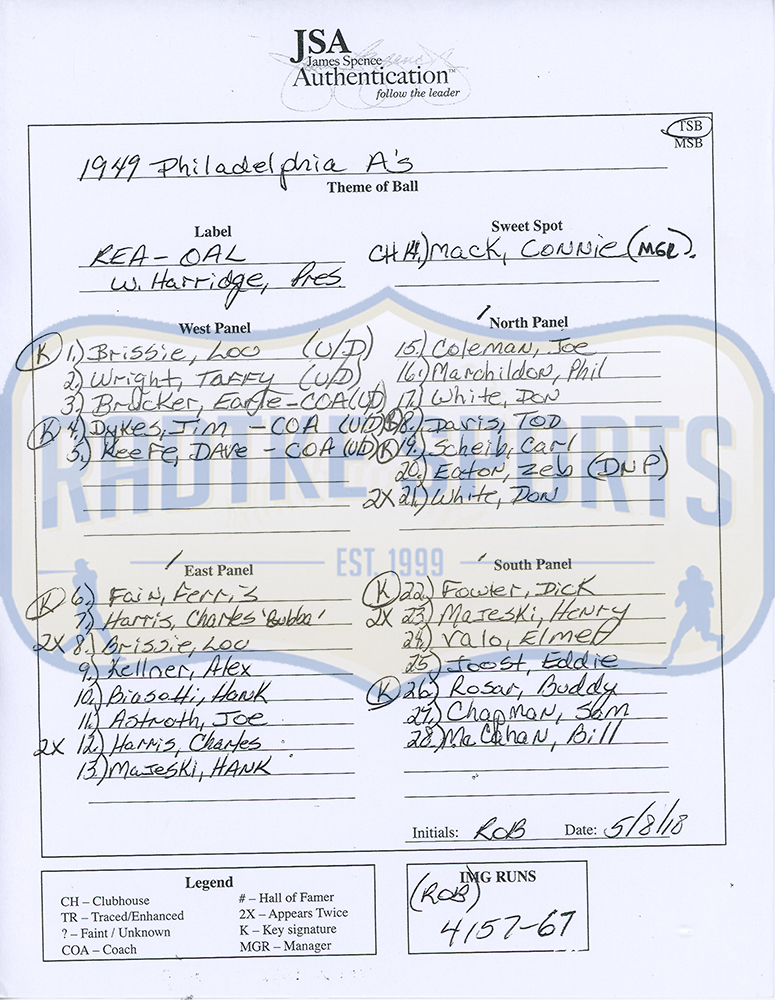 JSA
James Spence
Authentication™
follow the leader
TSB
MSB
1949 Philadelphia A's
Theme of Ball
Label
REA - OAL
W. Harridge, Pres
Sweet Spot
CH 14.) Mack, Connie (MGR).
West Panel
K 1.) Brissie, Lou (U/D)
2.) Wright, Taffy (U/D)
3.) Brucker, Earle - COA (UD)
K 4.) Dykes, Jim - COA (U/D)
5.) Keefe, Dave - COA (UD)
North Panel
15.) Coleman, Joe
16.) Marchildon, Phil
17.) White, Don
K 18.) Davis, Tod
K 19.) Scheib, Carl
20.) Eaton, Zeb (DNP)
2X 21.) White, Don
RADTKE SPORTS
EST. 1999
East Panel
K 6.) Fain, Ferris
7.) Harris, Charles 'Bubba'
2X 8.) Brissie, Lou
9.) Kellner, Alex
10.) Biasatti, Hank
11.) Astroth, Joe
2X 12.) Harris, Charles
13.) Majeski, Hank
South Panel
K 22.) Fowler, Dick
2X 23.) Majeski, Henry
24.) Valo, Elmer
25.) Joost, Eddie
K 26.) Rosar, Buddy
27.) Chapman, Sam
28.) McCahan, Bill
Initials: ROB Date: 5/8/18
Legend
CH – Clubhouse
TR – Traced/Enhanced
? – Faint / Unknown
COA – Coach
# – Hall of Famer
2X – Appears Twice
K – Key signature
MGR – Manager
IMG RUNS
(ROB)
4157-67